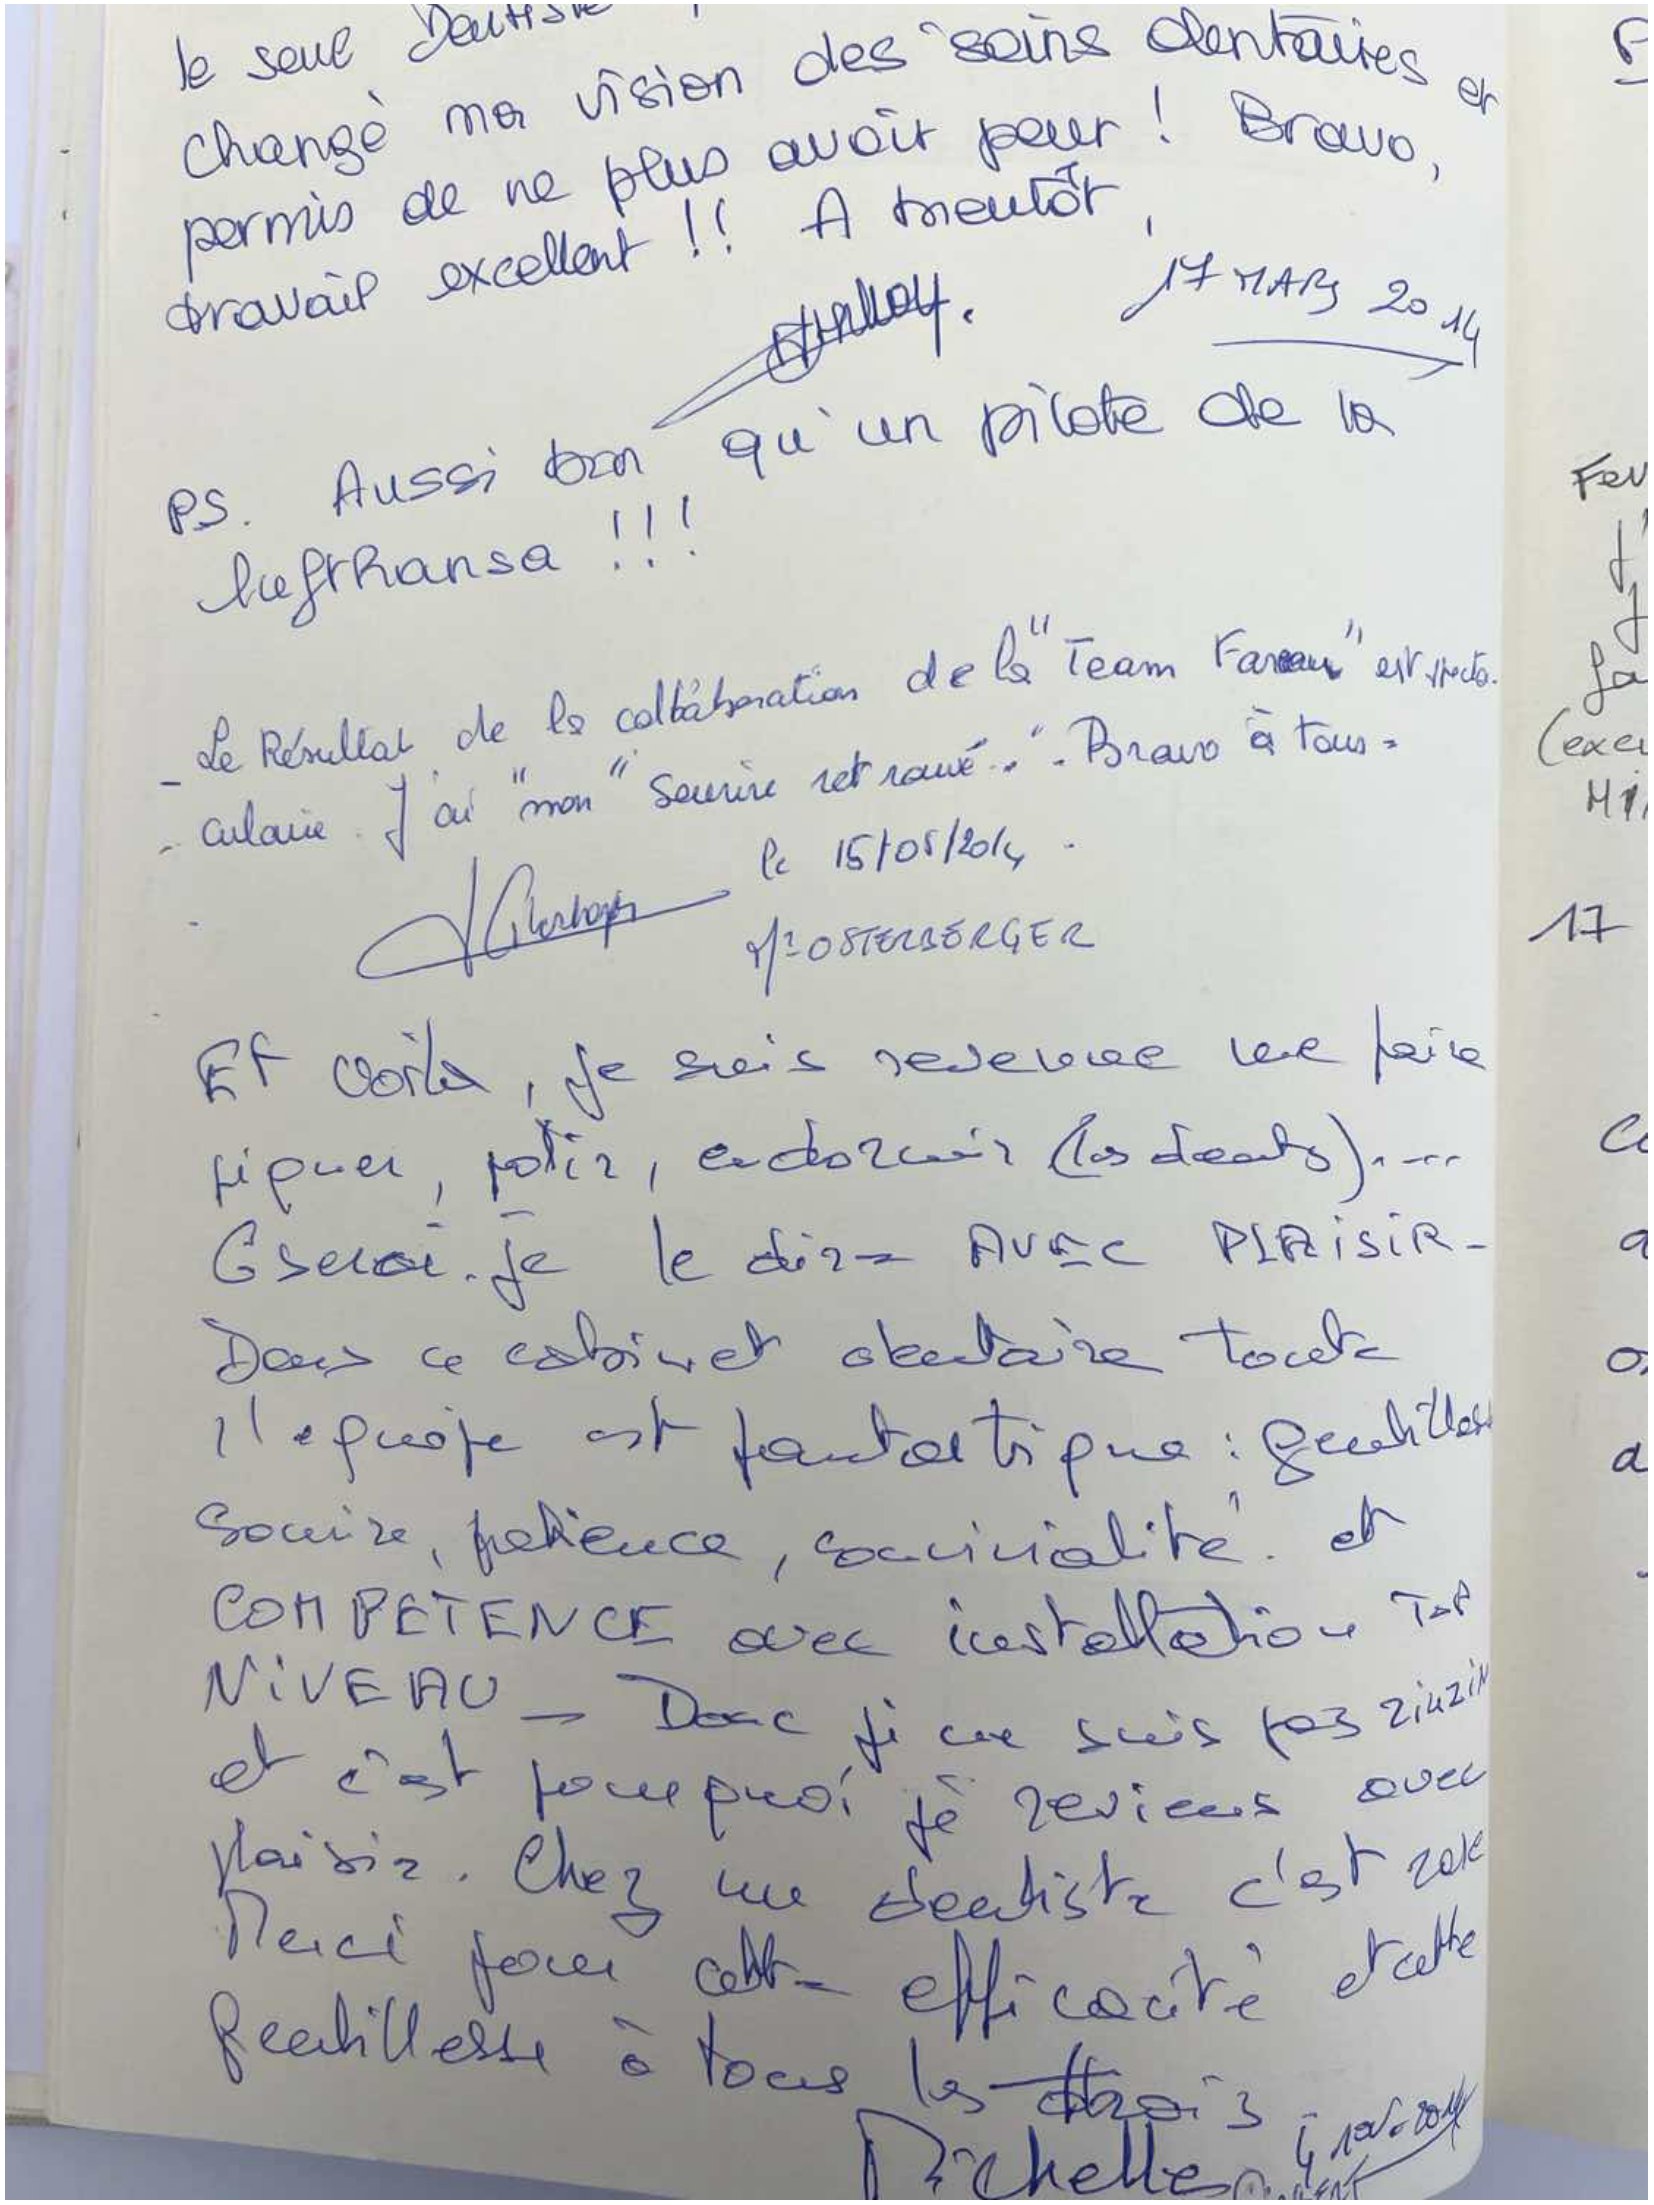 le seul Dentiste
changé ma vision des soins dentaires et
permis de ne plus avoir peur ! Bravo,
travail excellent !! A bientôt,
17 MARS 2014
PS. Aussi bon qu'un pilote de la
lufthansa !!!
- Le Résultat de la collaboration de la "Team Fareau" est specta-
- culaire. J'ai "mon" sourire retrouvé... Bravo à tous -
le 15/05/2014.
Mr OSTERBERGER
Et voilà, je suis revenue me faire
piquer, polir, endormir (les dents)....
Oserai-je le dire AVEC PLAISIR -
Dans ce cabinet dentaire toute
l'equipe est fantastique : gentillesse
sourire, patience, convivialité. et
COMPETENCE avec installation TOP
NIVEAU _ Donc je ne suis pas zinzin
et c'est pourquoi je reviens avec
plaisir. Chez un dentiste c'est rare
Merci pour cette efficacité et cette
gentillesse à tous les trois
Michelle 4 nov. 2014
Fev
(exce
17